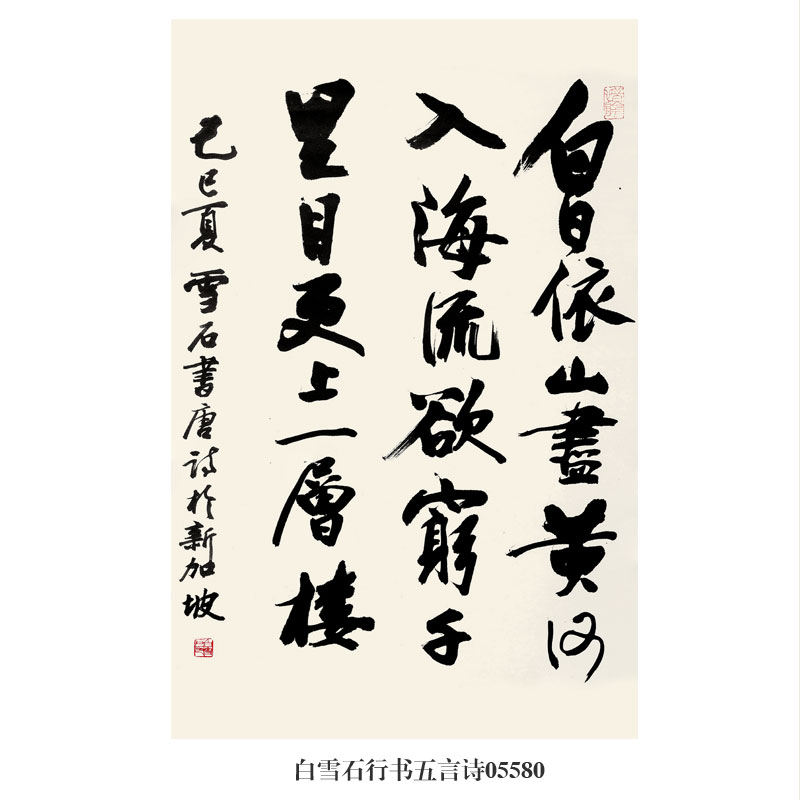 白日依山盡黄河
入海流欲窮千
里目更上一層楼
己巳夏雪石書唐诗於新加坡
白雪石行书五言诗05580